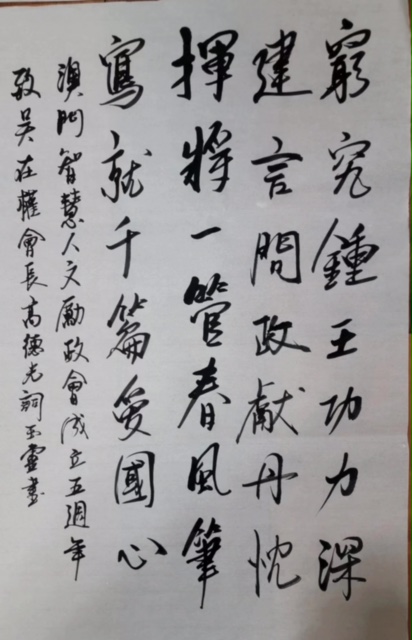 窮究鍾王功力深
建言問政獻丹忱
揮將一管春風筆
寫就千篇愛國心
澳門智慧人文勵政會成立五週年
致吳在權會長高德光詞玉靈書